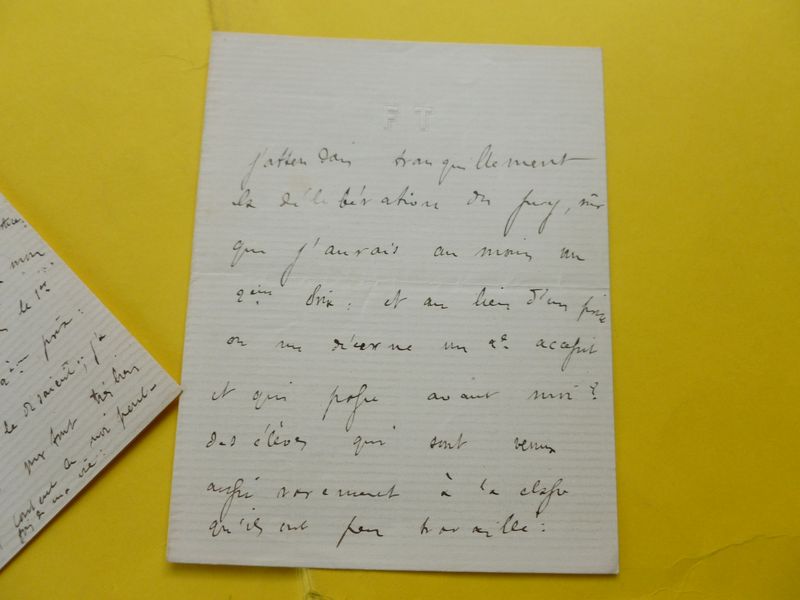 FT
j'attendais tranquillement
la délibération du jury, sûr
que j'aurais au moins un
2ème Prix : et au lieu d'un prix
on me décerne un 2e accessit
et qui passe avant moi ?
des élèves qui sont venus
aussi rarement à la classe
qu'ils ont peu travaillé :
mon
le 1er
2ème prix :
le disaient ; j'ai
font très bien